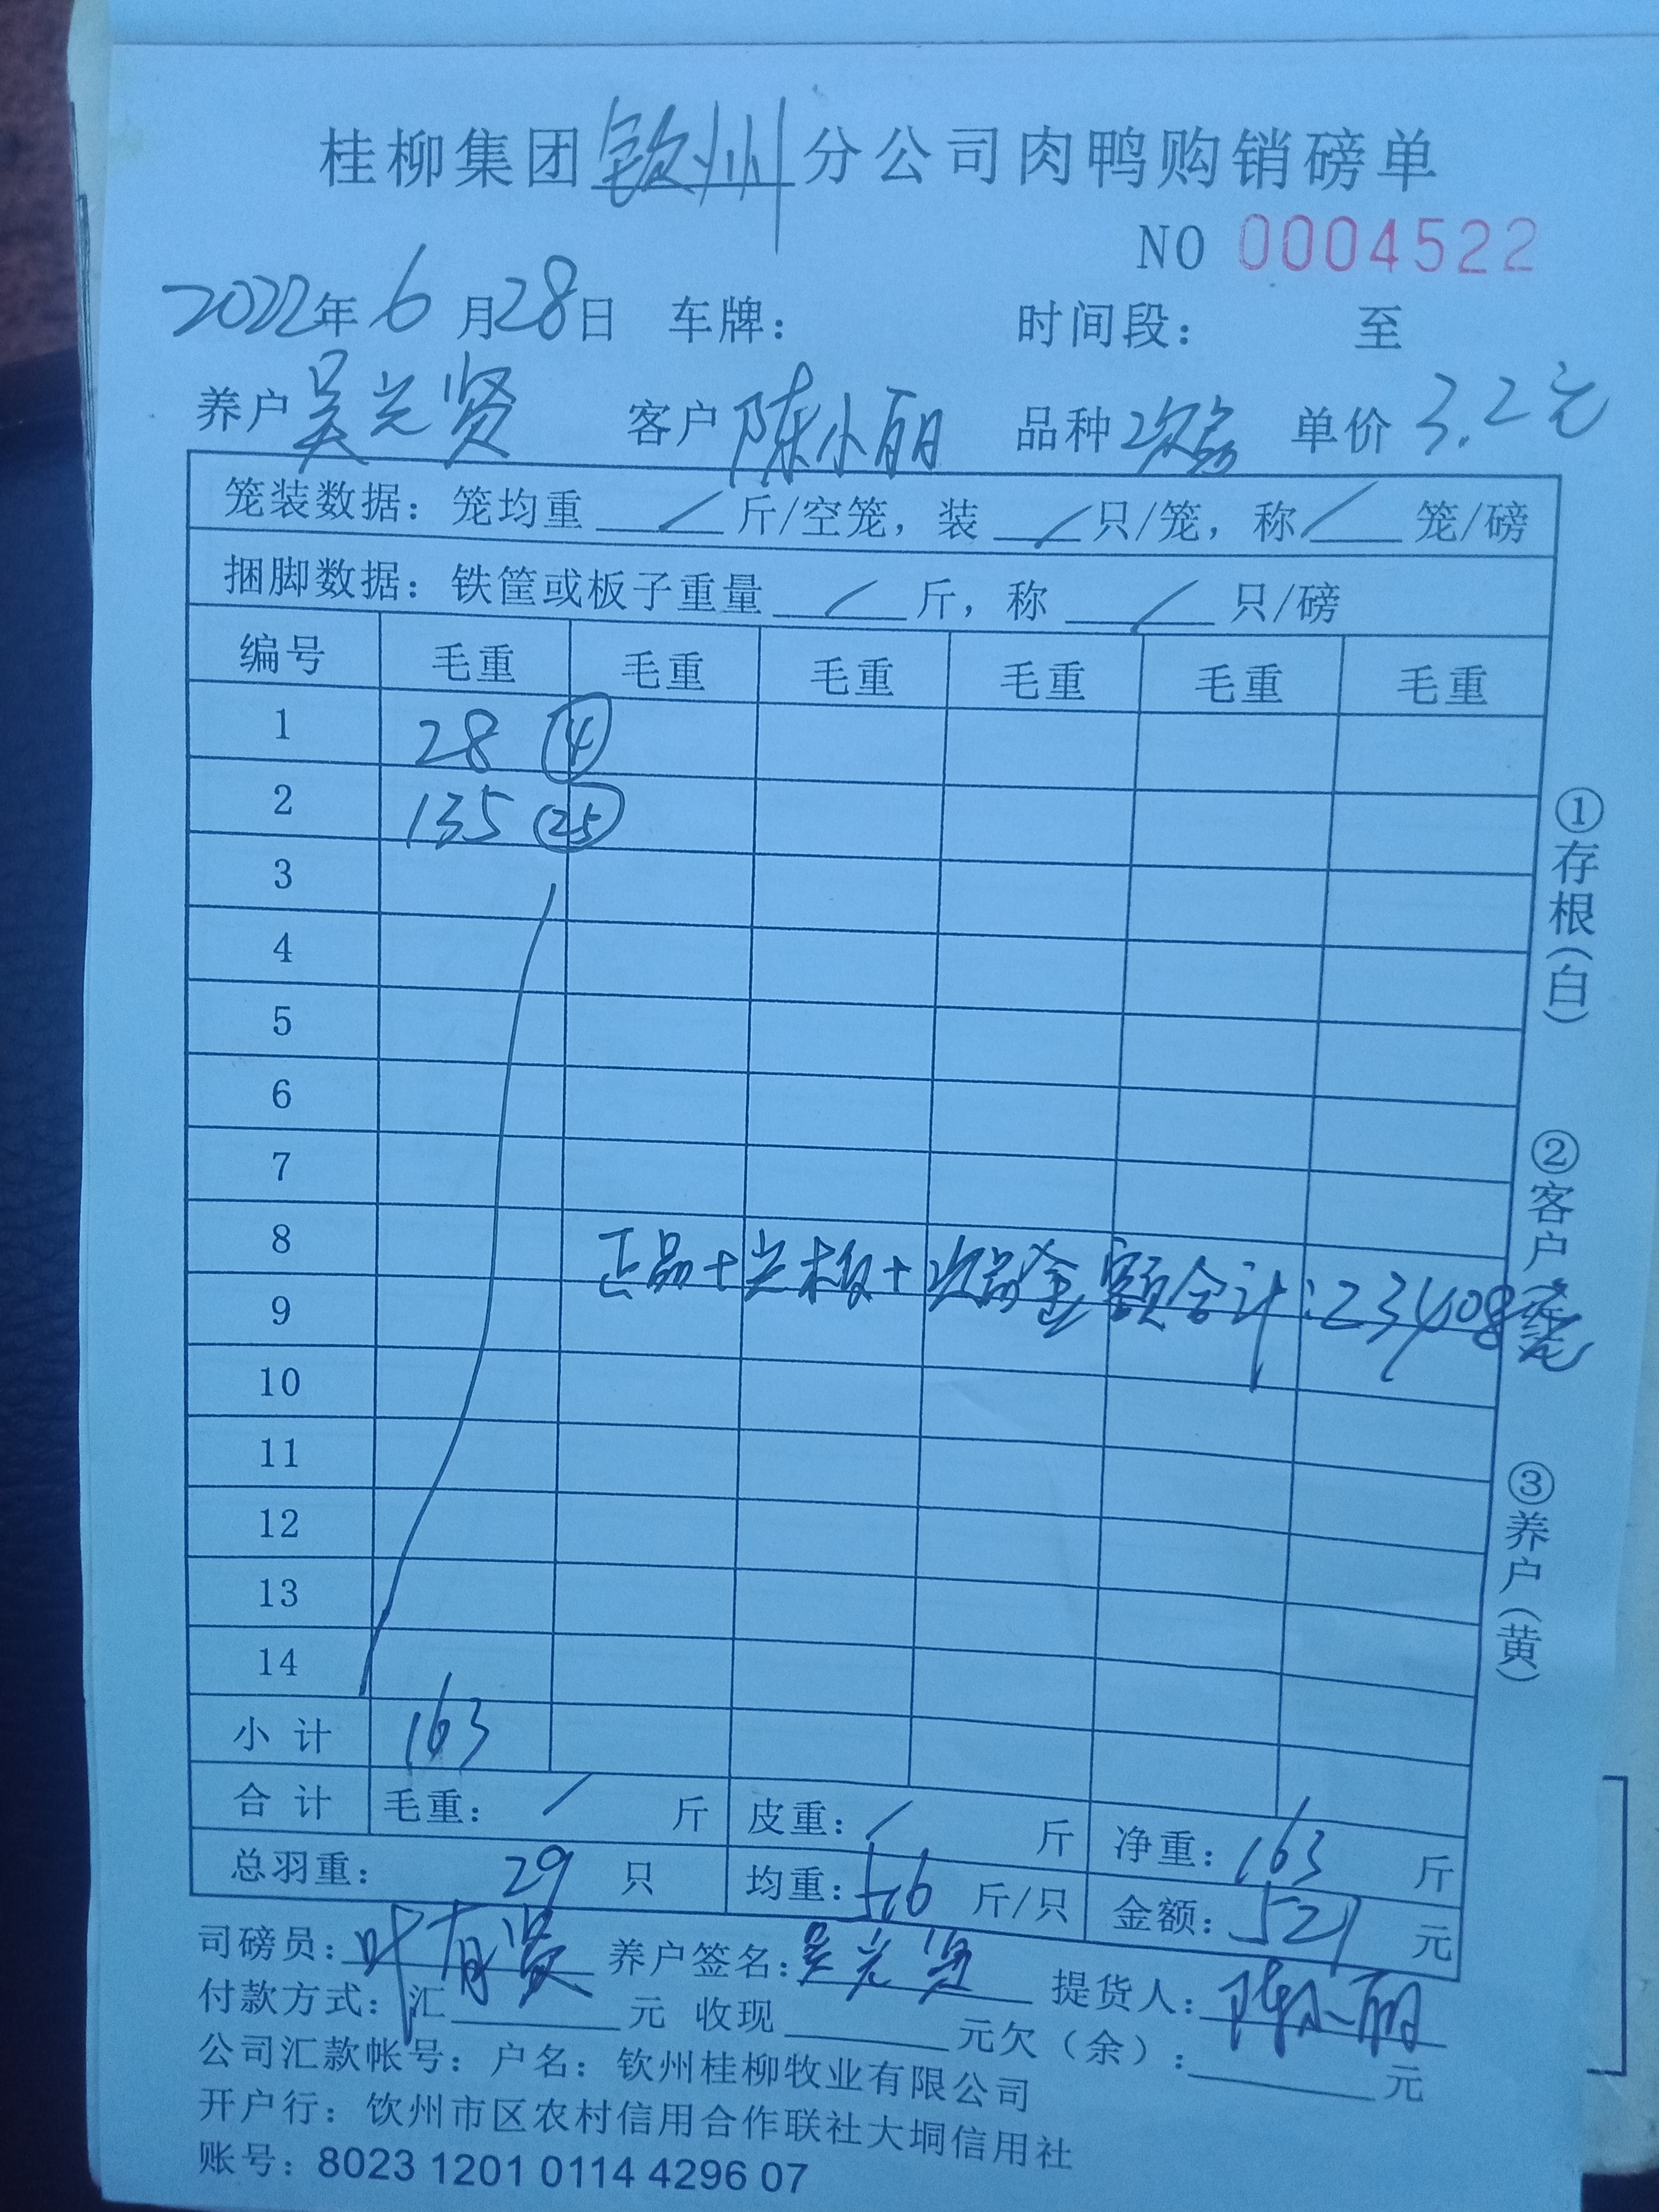 桂柳集团钦州分公司肉鸭购销磅单
NO 0004522
2022年6月28日 车牌： 时间段： 至
养户吴光贤 客户陈小丽 品种次品 单价3.2元
笼装数据：笼均重/斤/空笼，装/只/笼，称/笼/磅
捆脚数据：铁筐或板子重量/斤，称/只/磅
编号 毛重 毛重 毛重 毛重 毛重 毛重
1 28 ④
2 135 ㉕
3
4
5
6
7
8
正品+光板+次品金额合计：23408
9
10
11
12
13
14
小计 163
合计 毛重：/斤 皮重：/斤 净重：163斤
总羽重：29只 均重：5.6斤/只 金额：521元
司磅员：叶有贤 养户签名：吴光贤 提货人：陈小丽
付款方式：汇 元 收现 元欠（余）： 元
公司汇款帐号：户名：钦州桂柳牧业有限公司
开户行：钦州市区农村信用合作联社大垌信用社
账号：8023 1201 0114 4296 07
①存根（白）
②客户
③养户（黄）